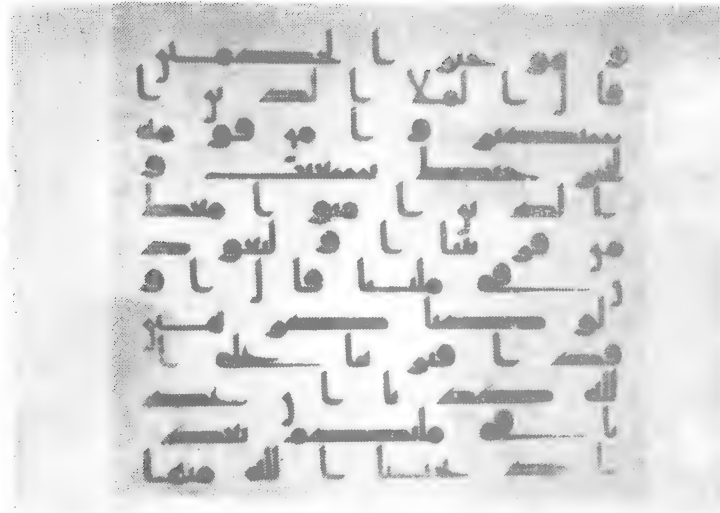 و هو خير الحكمين
قال الملا الذين ا
ستكبروا من قومه
لنخرجنك يشعيب و
الذين امنوا معك
من قريتنا او لتعود
ن في ملتنا قال ا و
لو كنا كرهين
قد افترينا على ا
لله كذبا ان عد
نا في ملتكم بعد
اذ نجينا الله منها